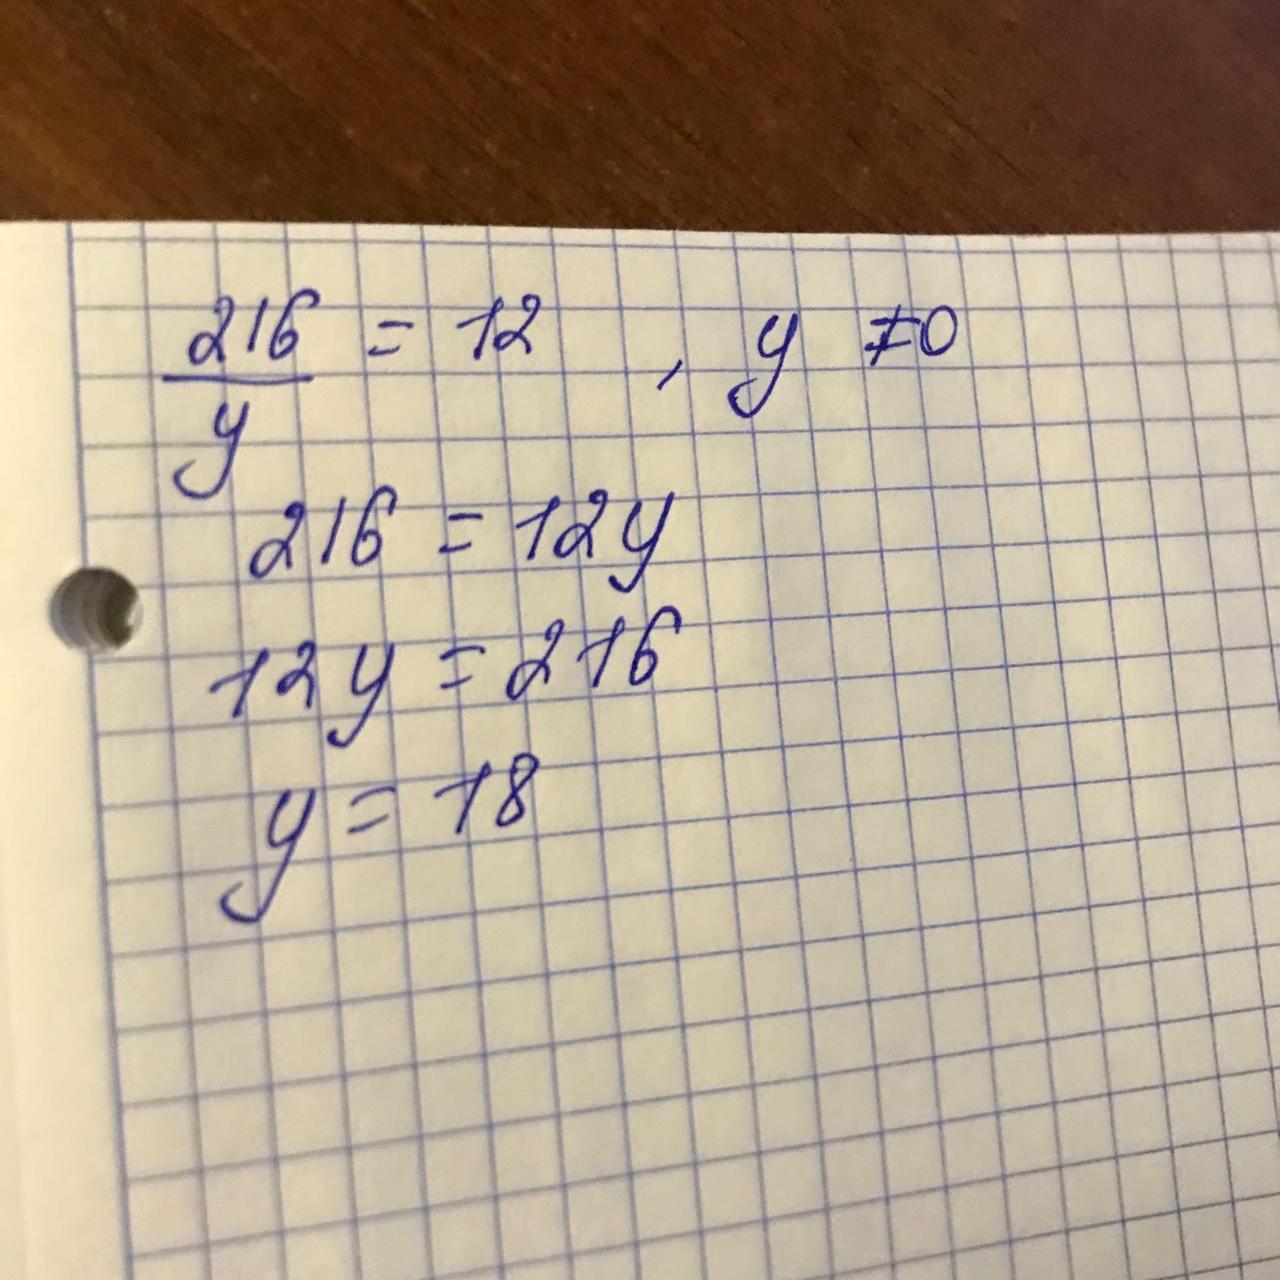 216/y = 12 , y ≠ 0
216 = 12y
12y = 216
y = 18